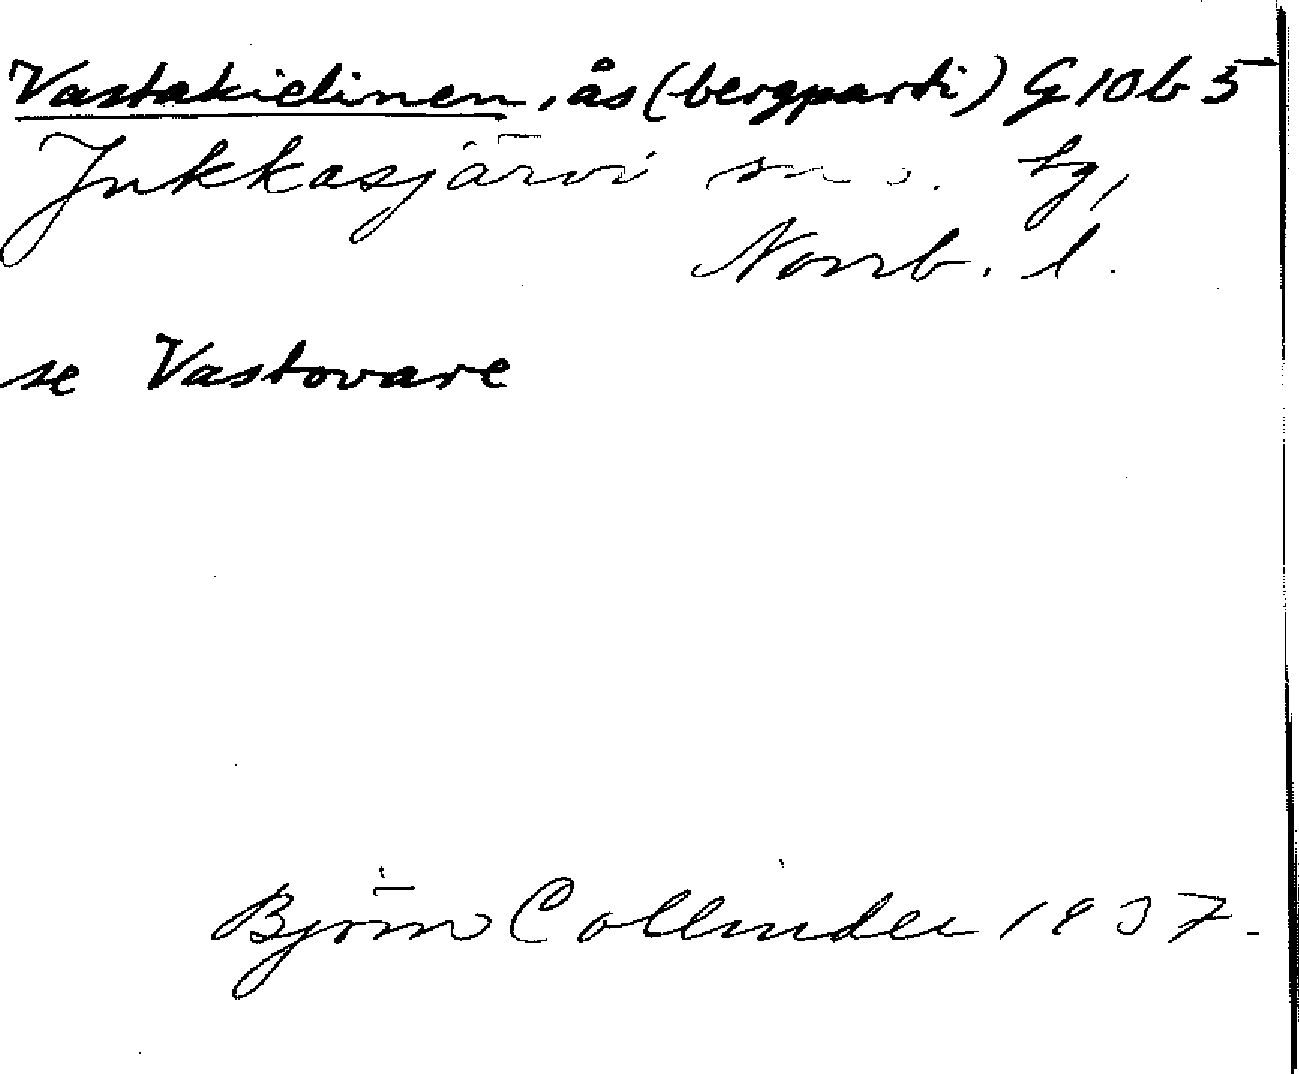 Vastakielinen, ås (bergparti) G 10 b 5
Jukkasjärvi sn o. tg,
Norrb. l.
se Vastovare
Björn Collinder 1937.